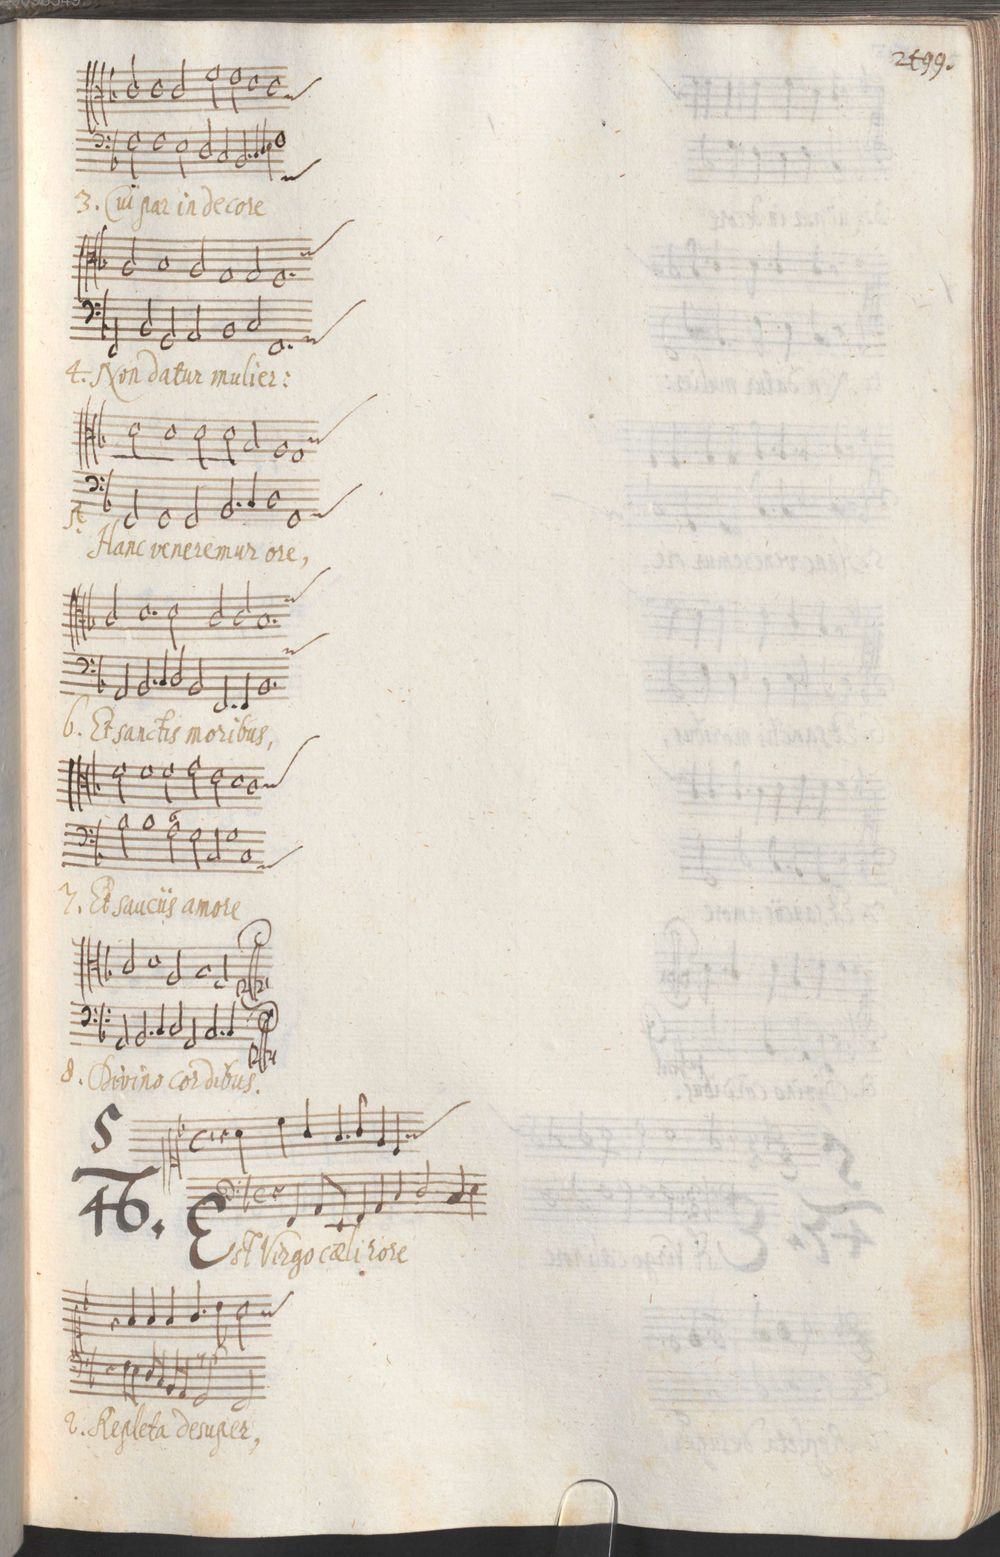 2499.
3. Cui par in decore
4. Non datur mulier:
5.
Hanc veneremur ore,
6. Et sanctis moribus,
7. Et sauciis amore
8. Divino cordibus.
5
46.
Est Virgo cæli rore
2. Repleta desuper,